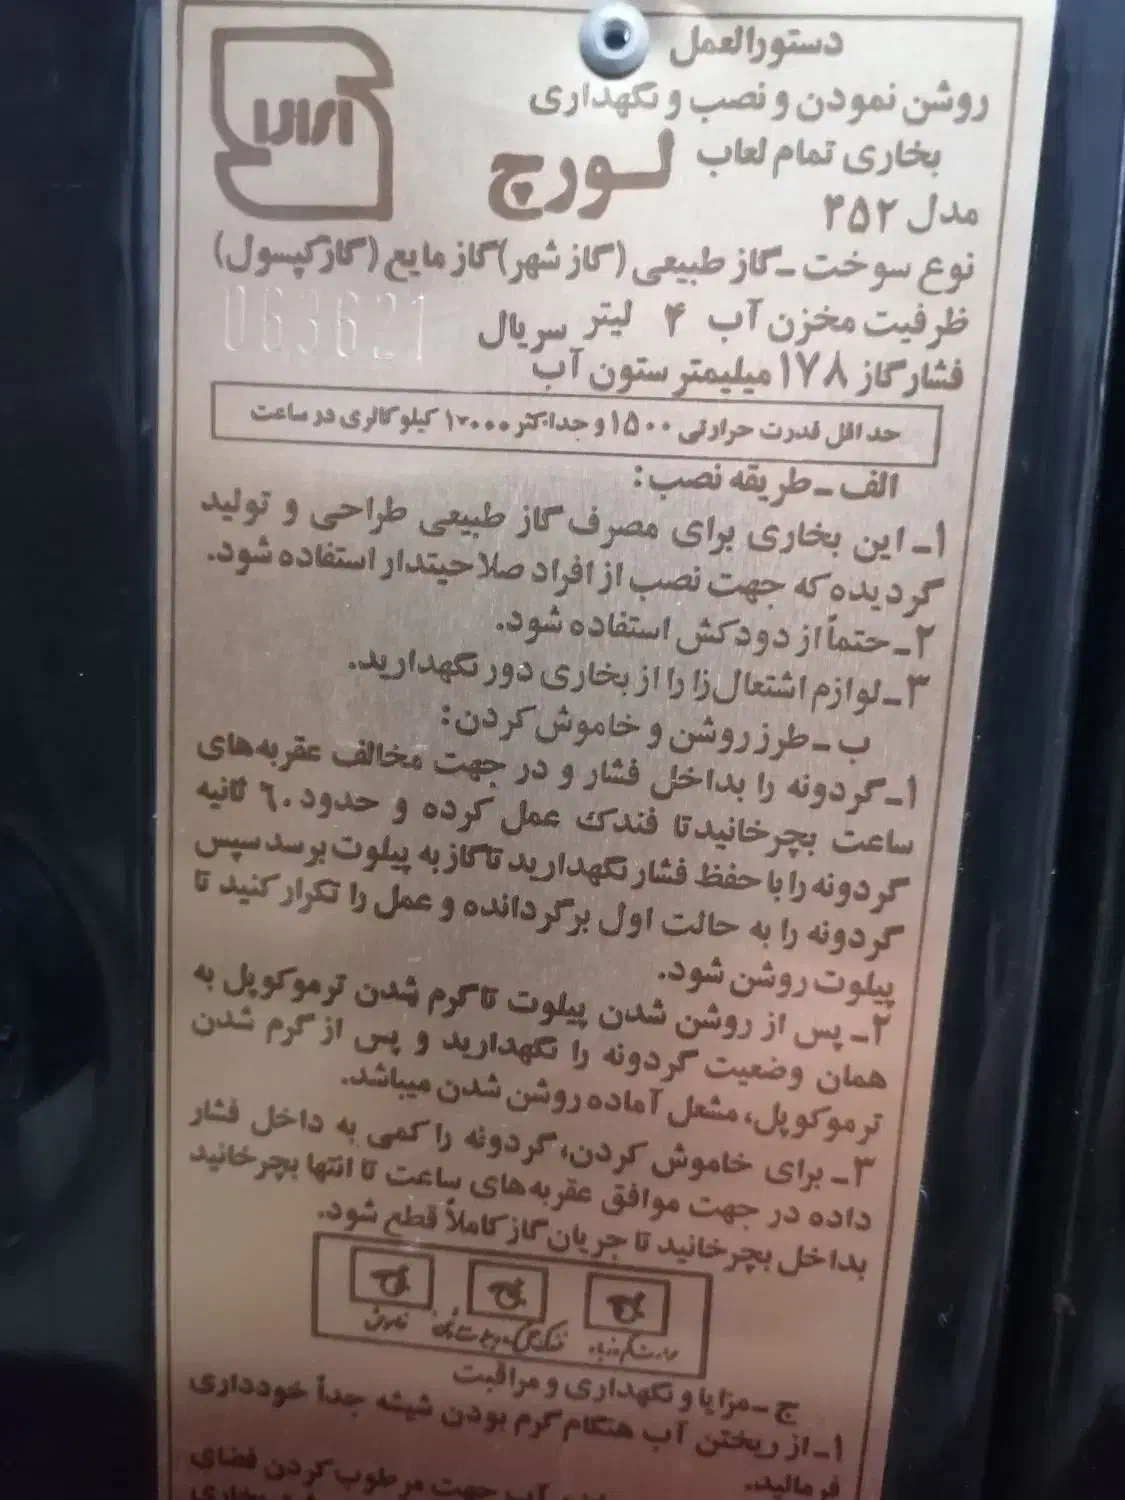 دستورالعمل
روشن نمودن و نصب و نگهداری
بخاری تمام لعاب لورچ
مدل ۴۵۲
نوع سوخت ـ گاز طبیعی (گاز شهر) گاز مایع (گاز کپسول)
ظرفیت مخزن آب ۴ لیتر سریال 063621
فشار گاز ۱۷۸ میلیمتر ستون آب
حداقل قدرت حرارتی ۱۵۰۰ و حداکثر ۱۰۰۰۰ کیلو کالری در ساعت
الف ـ طریقه نصب:
۱ـ این بخاری برای مصرف گاز طبیعی طراحی و تولید
گردیده که جهت نصب از افراد صلاحیتدار استفاده شود.
۲ـ حتماً از دودکش استفاده شود.
۳ـ لوازم اشتعال‌زا را از بخاری دور نگهدارید.
ب ـ طرز روشن و خاموش کردن:
۱ـ گردونه را بداخل فشار و در جهت مخالف عقربه‌های
ساعت بچرخانید تا فندک عمل کرده و حدود ۶۰ ثانیه
گردونه را با حفظ فشار نگهدارید تا گاز به پیلوت برسد سپس
گردونه را به حالت اول برگردانده و عمل را تکرار کنید تا
پیلوت روشن شود.
۲ـ پس از روشن شدن پیلوت تا گرم شدن ترموکوپل به
همان وضعیت گردونه را نگهدارید و پس از گرم شدن
ترموکوپل، مشعل آماده روشن شدن میباشد.
۳ـ برای خاموش کردن، گردونه را کمی به داخل فشار
داده در جهت موافق عقربه‌های ساعت تا انتها بچرخانید
بداخل بچرخانید تا جریان گاز کاملاً قطع شود.
خاموش
ج ـ مزایا و نگهداری و مراقبت
۱ـ از ریختن آب هنگام گرم بودن شیشه جداً خودداری
فرمائید.
آب جهت مرطوب کردن فضای
بخاری